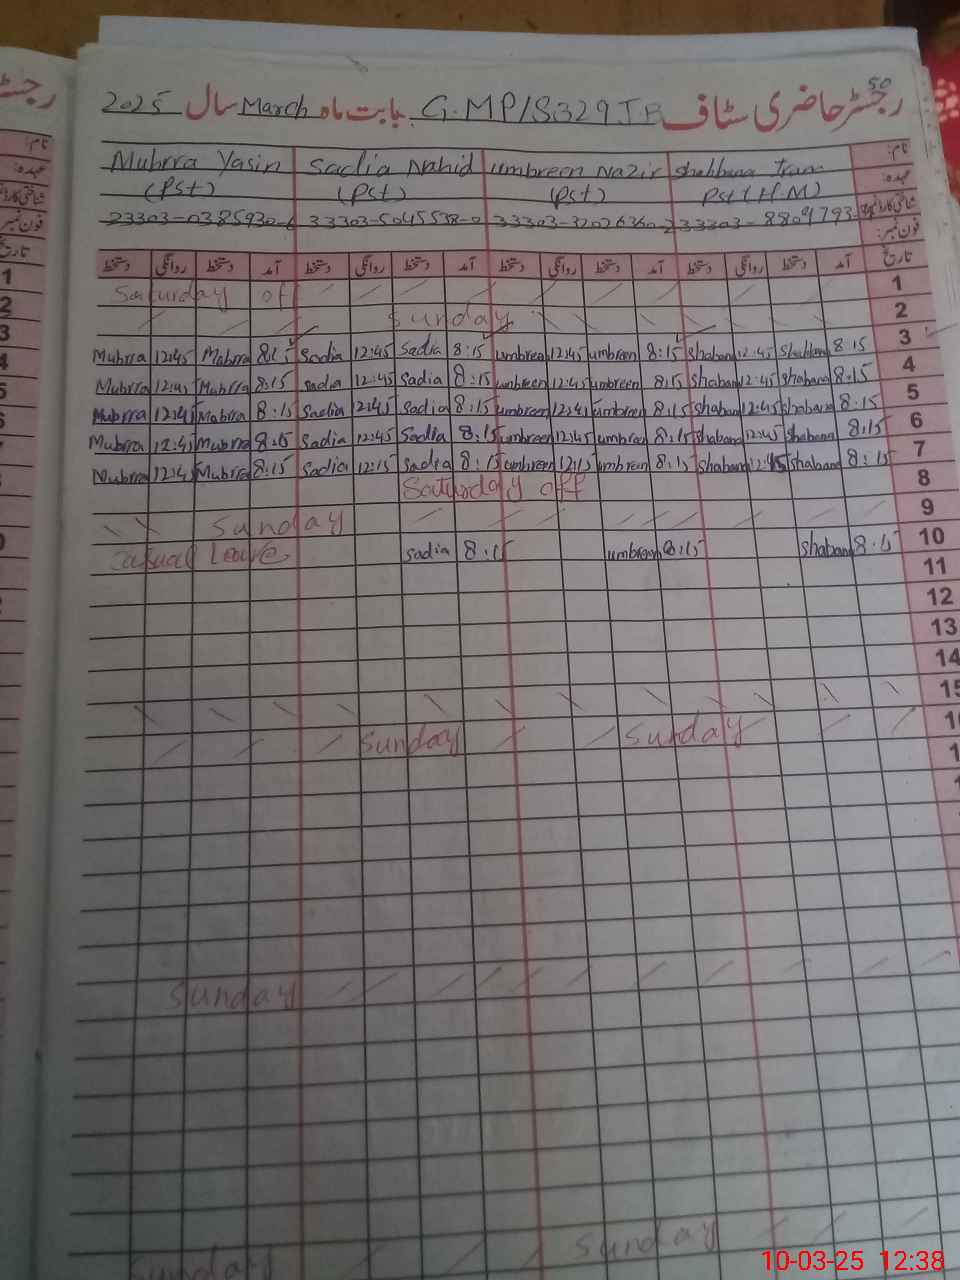 50
رجسٹر حاضری سٹاف G.MP/S 329 JB بابت ماہ March سال 2025
نام: Shabbana Umbreen Nazir Sadia Nahid Muhrra Yasin
عہدہ: Pst (H.M) (Pst) (Pst) (Pst)
فون نمبر:
تاریخ آمد دستخط روانگی دستخط آمد دستخط روانگی دستخط آمد دستخط روانگی دستخط آمد دستخط روانگی دستخط
Saturday off 1
Sunday 2
Muhrra 12:45 Muhrra 8:15 Sadia 12:45 Sadia 8:15 umbreen 12:45 umbreen 8:15 Shaban 12:45 Shabbana 8:15 3
Muhrra 12:45 Muhrra 8:15 Sadia 12:45 Sadia 8:15 umbreen 12:45 umbreen 8:15 Shaban 12:45 Shabana 8:15 4
Muhrra 12:45 Muhrra 8:15 Sadia 12:45 Sadia 8:15 umbreen 12:45 umbreen 8:15 Shaban 12:45 Shabana 8:15 5
Muhrra 12:45 Muhrra 8:15 Sadia 12:45 Sadia 8:15 umbreen 12:45 umbreen 8:15 Shaban 12:45 Shabana 8:15 6
Muhrra 12:45 Muhrra 8:15 Sadia 12:15 Sadia 8:15 umbreen 12:15 umbreen 8:15 Shaban 12:45 Shabana 8:15 7
Saturday off 8
Sunday 9
Casual Leave Sadia 8:15 umbreen 8:15 Shabana 8:15 10
11
12
13
14
15
Sunday Sunday
Sunday
Sunday Sunday
10-03-25 12:38